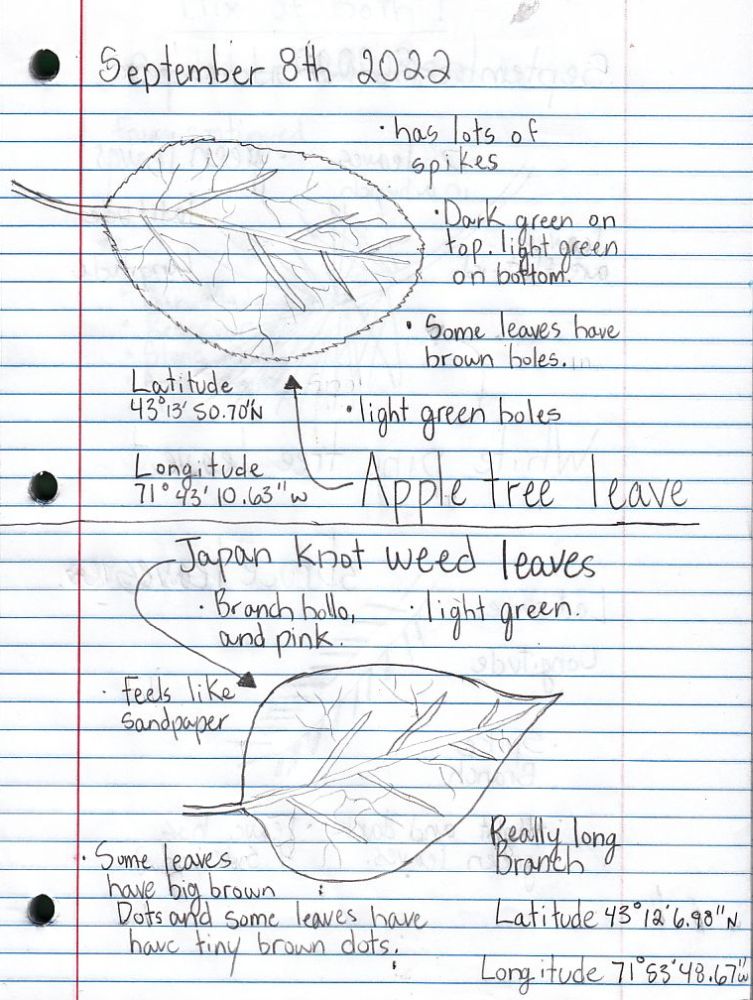 September 8th 2022
· has lots of
spikes
· Dark green on
top. light green
on bottom.
· Some leaves have
brown holes.
Latitude
43°13' 50.70"N
· light green holes
Longitude
71° 43' 10.63" W
Apple tree leave
Japan knot weed leaves
· Branch hollo,
and pink.
· light green.
· Feels like
sandpaper
Really long
Branch
· Some leaves
have big brown
Dots and some leaves have
have tiny brown dots.
Latitude 43° 12' 6.98" N
Longitude 71° 53' 48.67" W